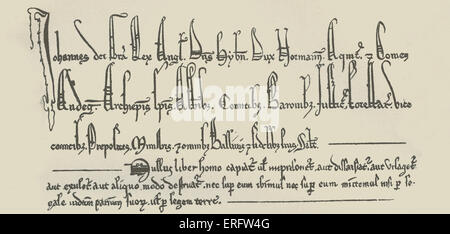 Johannes dei gra Rex Angl. Dns Hybn. Dux Normann. Aquit. & Comes
Andeg. Archiepis epis Abbibz. Comitibz. Baronibz. Justic. forestar. vice
comitibz. Prepositis. Ministris. & omnibz Ballivis & fidelibz suis Salt.
Nullus liber homo capiat. ul imprisonet. aut dissaisiat. aut utlaget.
aut exulet. aut aliquo modo destruat. nec sup eum ibimus nec sup eum mittemus nisi p le-
gale judicium parium suor. ul p legem terre.
alamy
Image ID: ERFW4G
www.alamy.com